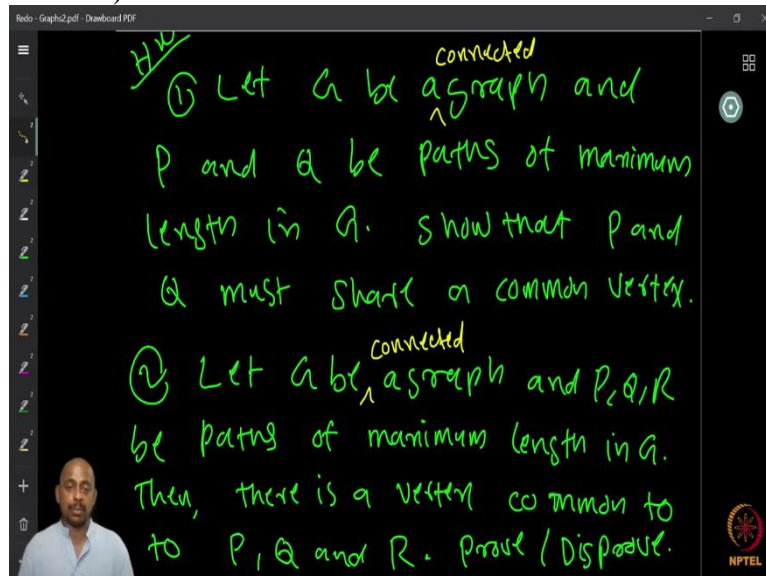 Redo - Graphs2.pdf - Drawboard PDF
HW
connected
① Let G be a ^ graph and
P and Q be paths of maximum
length in G. Show that P and
Q must share a common vertex.
connected
② Let G be ^ a graph and P, Q, R
be paths of maximum length in G.
Then, there is a vertex common to
to P, Q and R. Prove / Disprove.
NPTEL